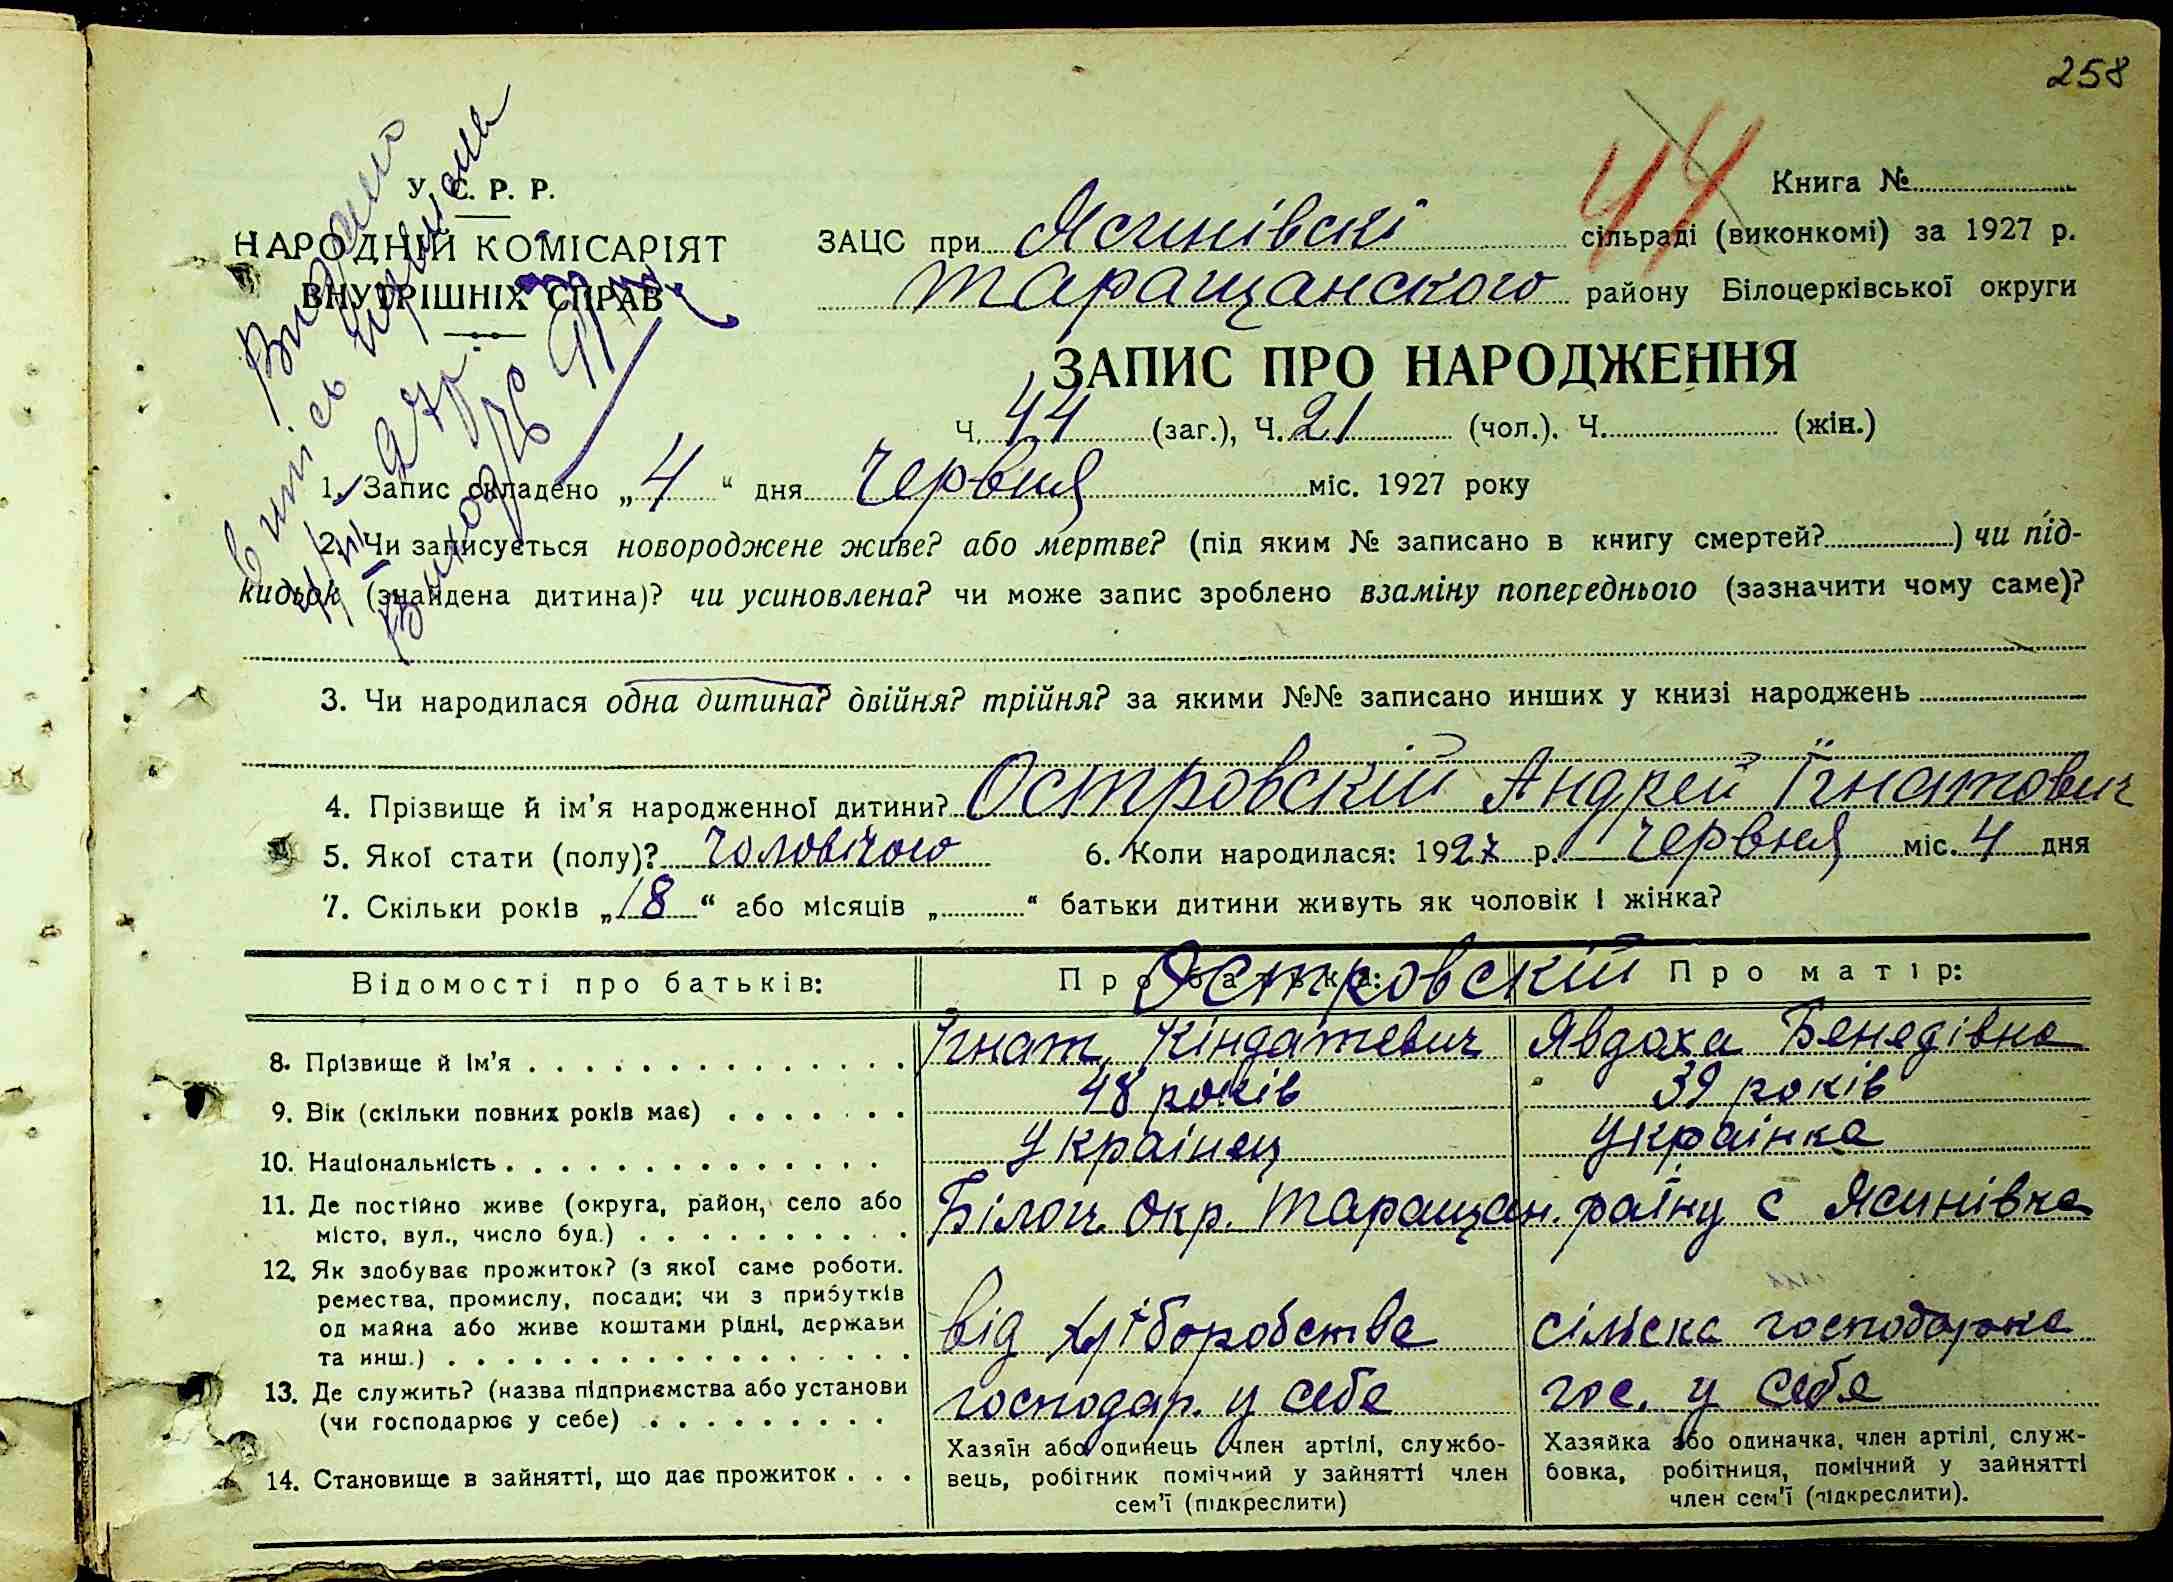 258
У. С. Р. Р.
НАРОДНІЙ КОМІСАРІЯТ
ВНУТРІШНІХ СПРАВ
Видано
випись
44
Книга №
ЗАЦС при Ясинівскі сільраді (виконкомі) за 1927 р.
Таращанского району Білоцерківської округи
ЗАПИС ПРО НАРОДЖЕННЯ
Ч. 44 (заг.), Ч. 21 (чол.). Ч. (жін.)
1. Запис складено „4“ дня червня міс. 1927 року
2. Чи записується новороджене живе? або мертве? (під яким № записано в книгу смертей? ) чи під-
кидьок (знайдена дитина)? чи усиновлена? чи може запис зроблено взаміну попереднього (зазначити чому саме)?
3. Чи народилася одна дитина? двійня? трійня? за якими №№ записано инших у книзі народжень
4. Прізвище й ім'я народженної дитини? Островскій Андрей Ігнатович
5. Якої стати (полу)? чоловічого 6. Коли народилася: 1927 р. червня міс. 4 дня
7. Скільки років „18“ або місяців „ “ батьки дитини живуть як чоловік і жінка?
Відомості про батьків: Про батька: Островскій Про матір:
8. Прізвище й ім'я Ігнат Кіндатевич Явдоха Бенедівна
9. Вік (скільки повних років має) 48 років 39 років
10. Національність Украінец Украінка
11. Де постійно живе (округа, район, село або
місто, вул., число буд.) Білоц. Окр. Таращан. раіну с Ясинівка
12. Як здобуває прожиток? (з якої саме роботи.
ремества, промислу, посади; чи з прибутків
од майна або живе коштами рідні, держави
та инш.) від хліборобства сільска господарка
13. Де служить? (назва підприємства або установи
(чи господарює у себе) господар. у себе гос. у себе
14. Становище в зайнятті, що дає прожиток
Хазяїн або одинець член артілі, службо-
вець, робітник помічний у зайнятті член
сем'ї (підкреслити)
Хазяйка або одиначка, член артілі, служ-
бовка, робітниця, помічний у зайнятті
член сем'ї (підкреслити).